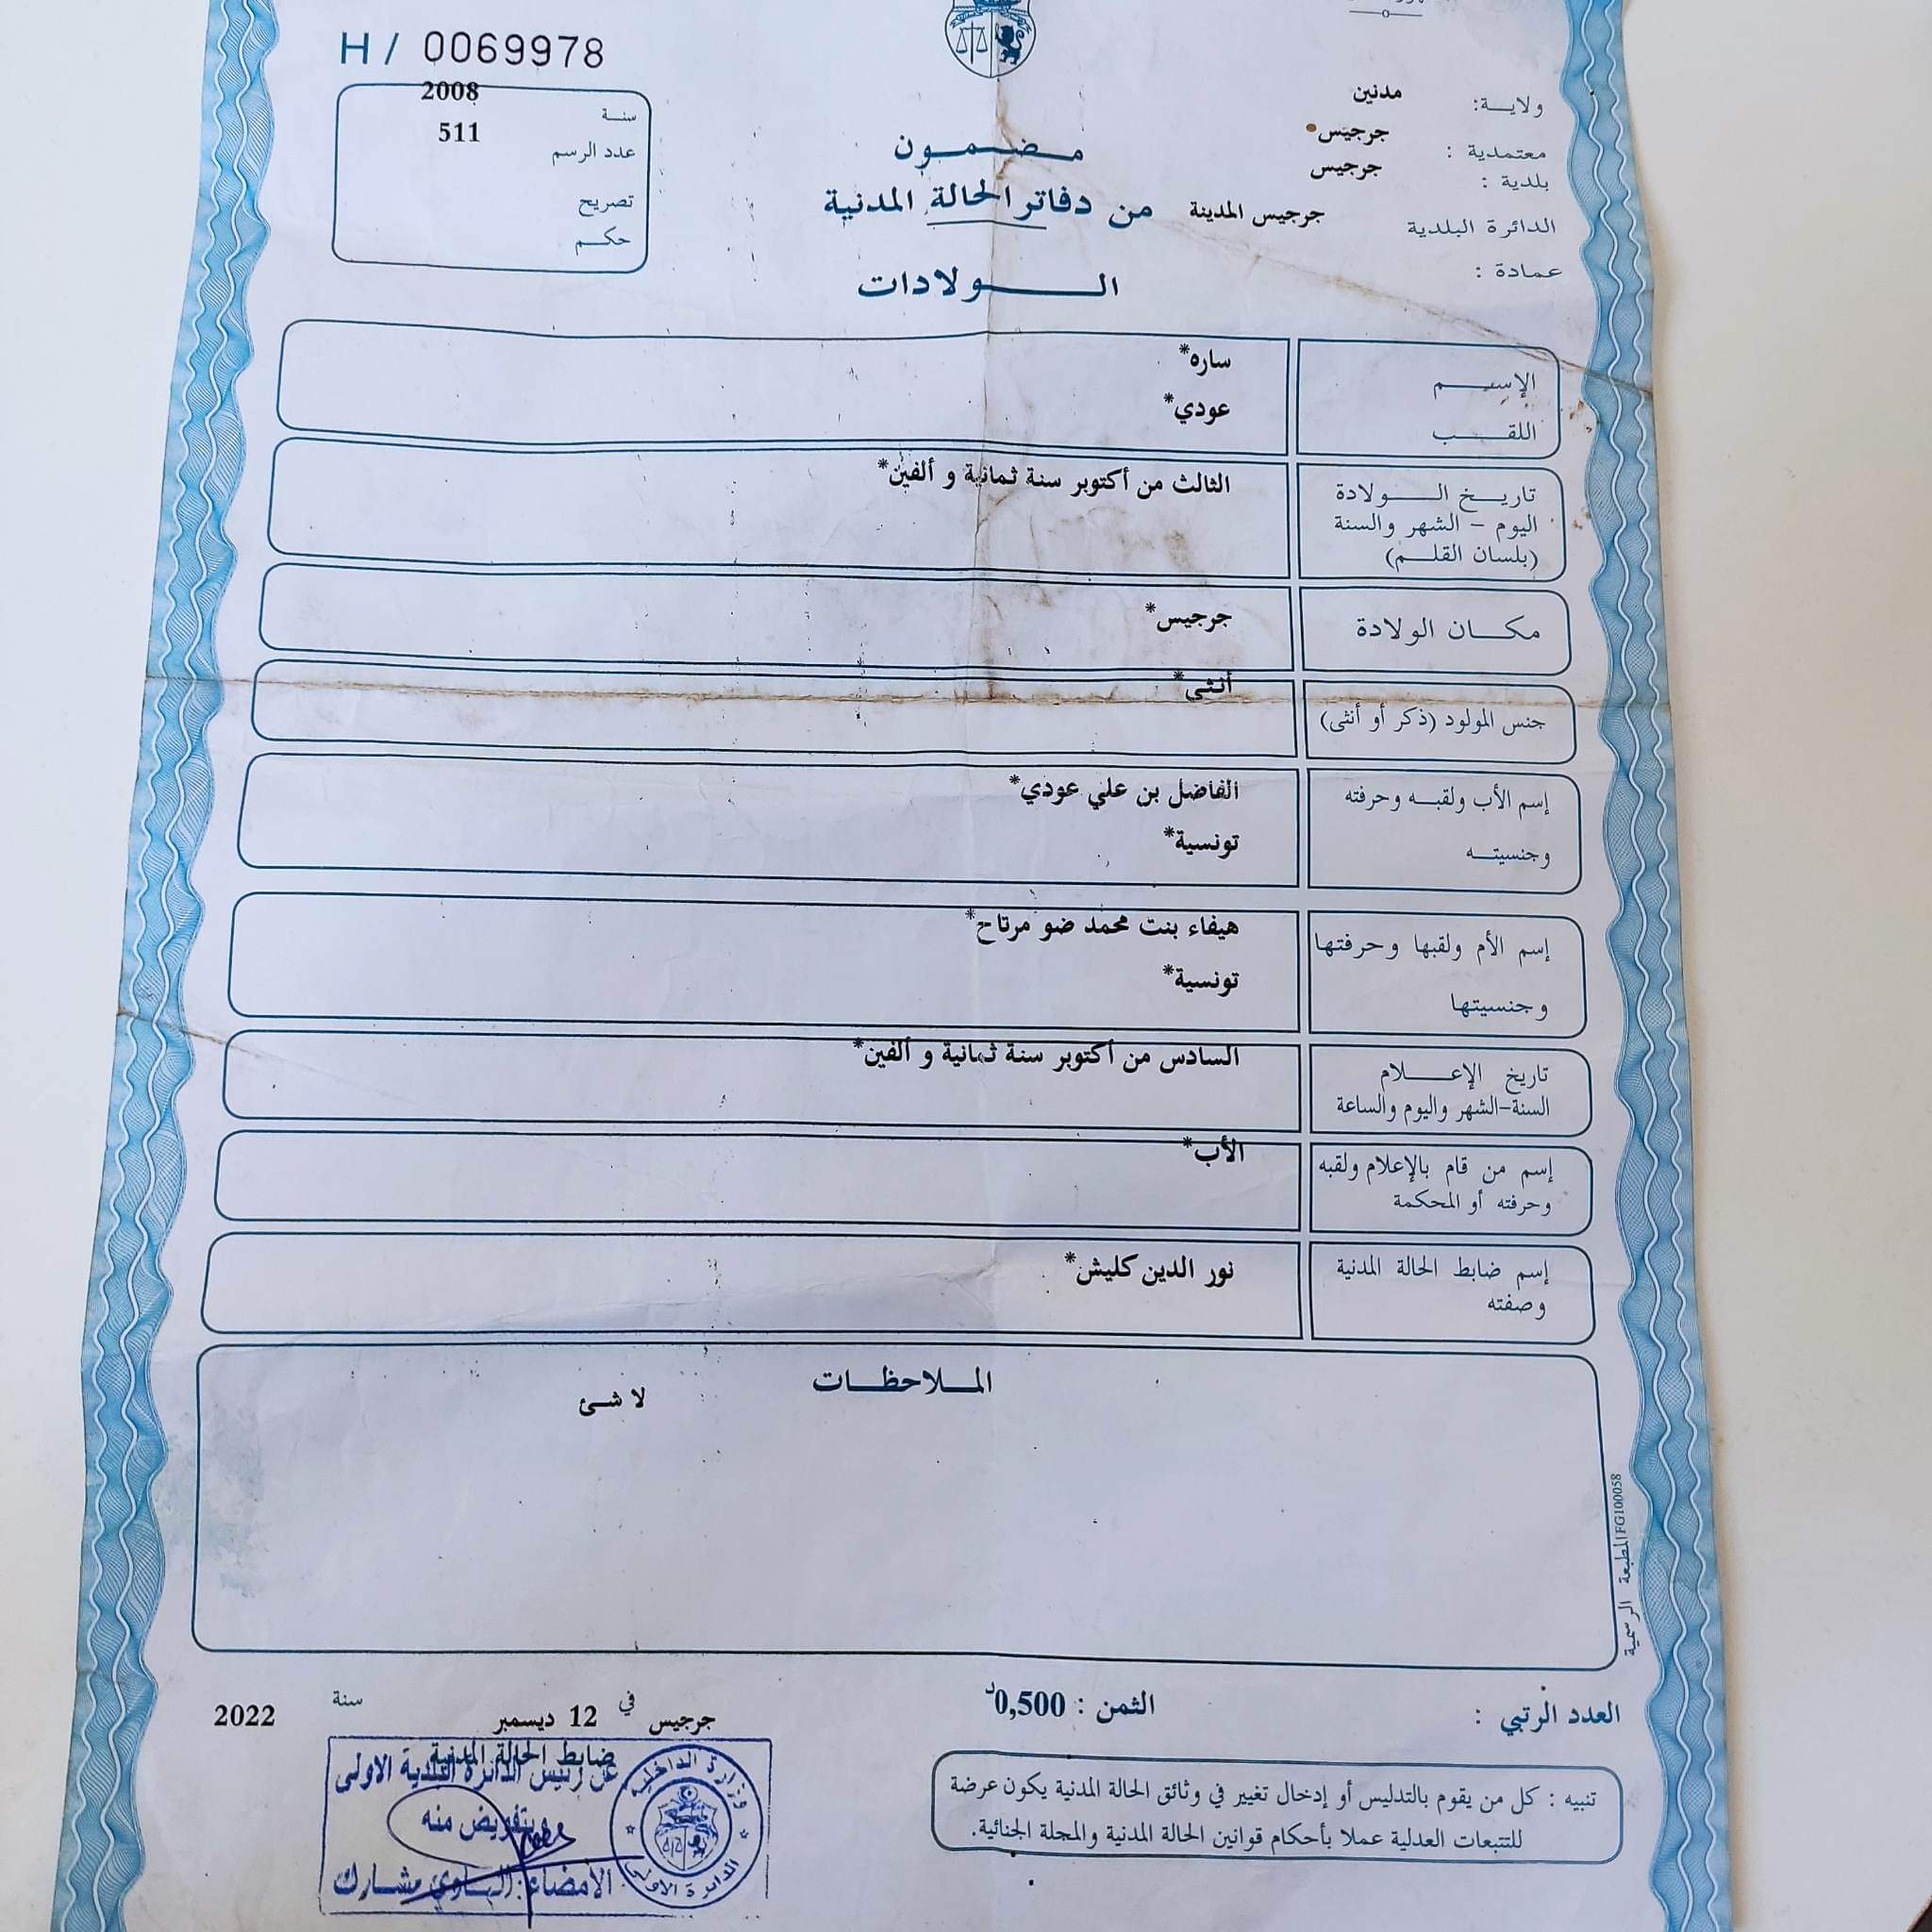 H / 0069978
سنة 2008
عدد الرسم 511
تصريح
حكم
ولاية: مدنين
معتمدية : جرجيس
بلدية : جرجيس
الدائرة البلدية جرجيس المدينة
عمادة :
مضمون
من دفاتر الحالة المدنية
الولادات
الإسم ساره*
اللقب عودي*
تاريخ الولادة الثالث من أكتوبر سنة ثمانية و ألفين*
اليوم - الشهر والسنة
(بلسان القلم)
مكان الولادة جرجيس*
جنس المولود (ذكر أو أنثى) أنثى*
إسم الأب ولقبه وحرفته الفاضل بن علي عودي*
وجنسيته تونسية*
إسم الأم ولقبها وحرفتها هيفاء بنت محمد ضو مرتاح*
وجنسيتها تونسية*
تاريخ الإعلام السادس من أكتوبر سنة ثمانية و ألفين*
السنة-الشهر واليوم والساعة
إسم من قام بالإعلام ولقبه الأب*
وحرفته أو المحكمة
إسم ضابط الحالة المدنية نور الدين كليش*
وصفته
الملاحظات
لا شئ
المطبعة الرسمية FG100058
العدد الرتبي :
الثمن : 0,500د
جرجيس في 12 ديسمبر سنة 2022
تنبيه : كل من يقوم بالتدليس أو إدخال تغيير في وثائق الحالة المدنية يكون عرضة
للتتبعات العدلية عملا بأحكام قوانين الحالة المدنية والمجلة الجنائية.
ضابط الحالة المدنية
عن رئيس الدائرة البلدية الاولى
وبتفويض منه
الأمضاء :
مشارك
وزارة الداخلية
الدائرة الاولى